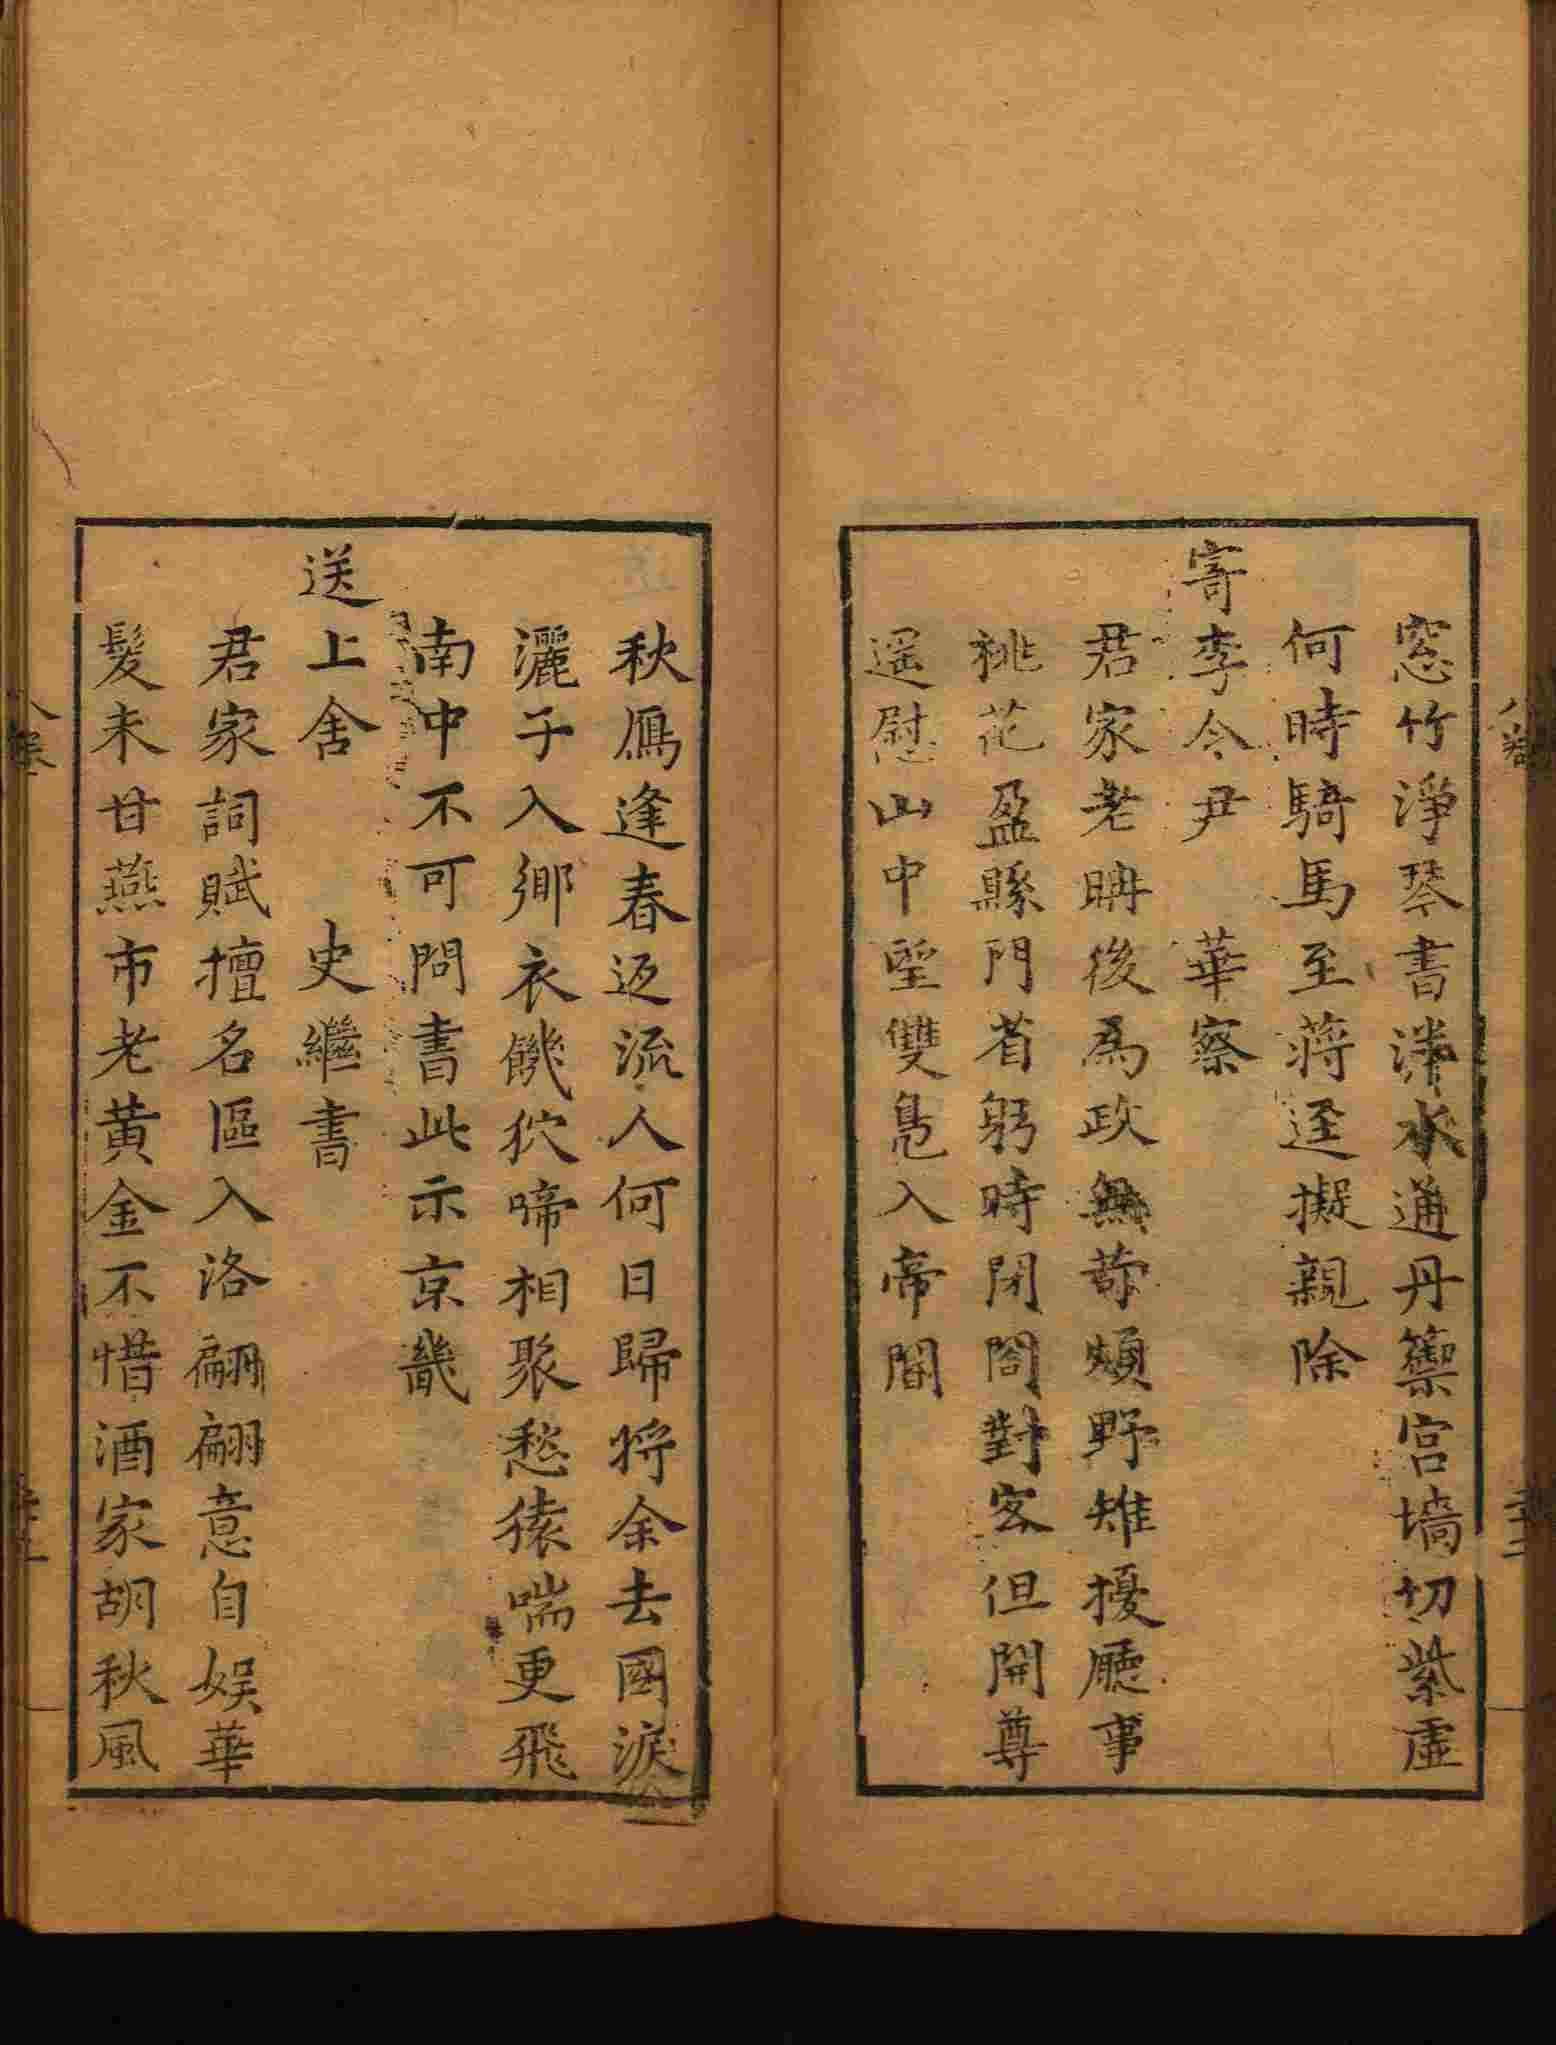 窓竹淨琴書渉水通丹籞宮墻切紫虛
何時騎馬至蔣逕擬親除
寄李令尹　華察
君家老冉後爲政無苛煩野雉擾廳事
桃花盈縣門省躬時閉閤對客但開尊
遥慰山中望雙鳬入帝閽
秋鴈逢春返流人何日歸將余去國淚
灑子入鄉衣饑狖啼相聚愁猿喘更飛
南中不可問書此示京畿
送上舍　史繼書
君家詞賦擅名區入洛翩翩意自娱華
髮未甘燕市老黄金不惜酒家胡秋風